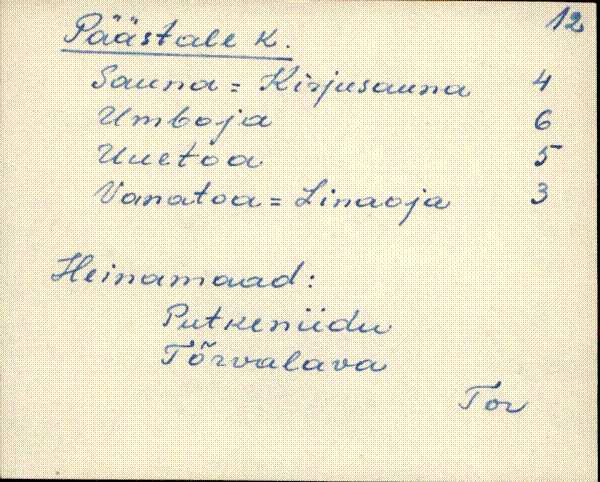 12
Päästale k.
Sauna = Kirjusauna 4
Umboja 6
Uuetoa 5
Vanatoa = Linaoja 3
Heinamaad:
Putkeniidu
Tõrvalava
Tor